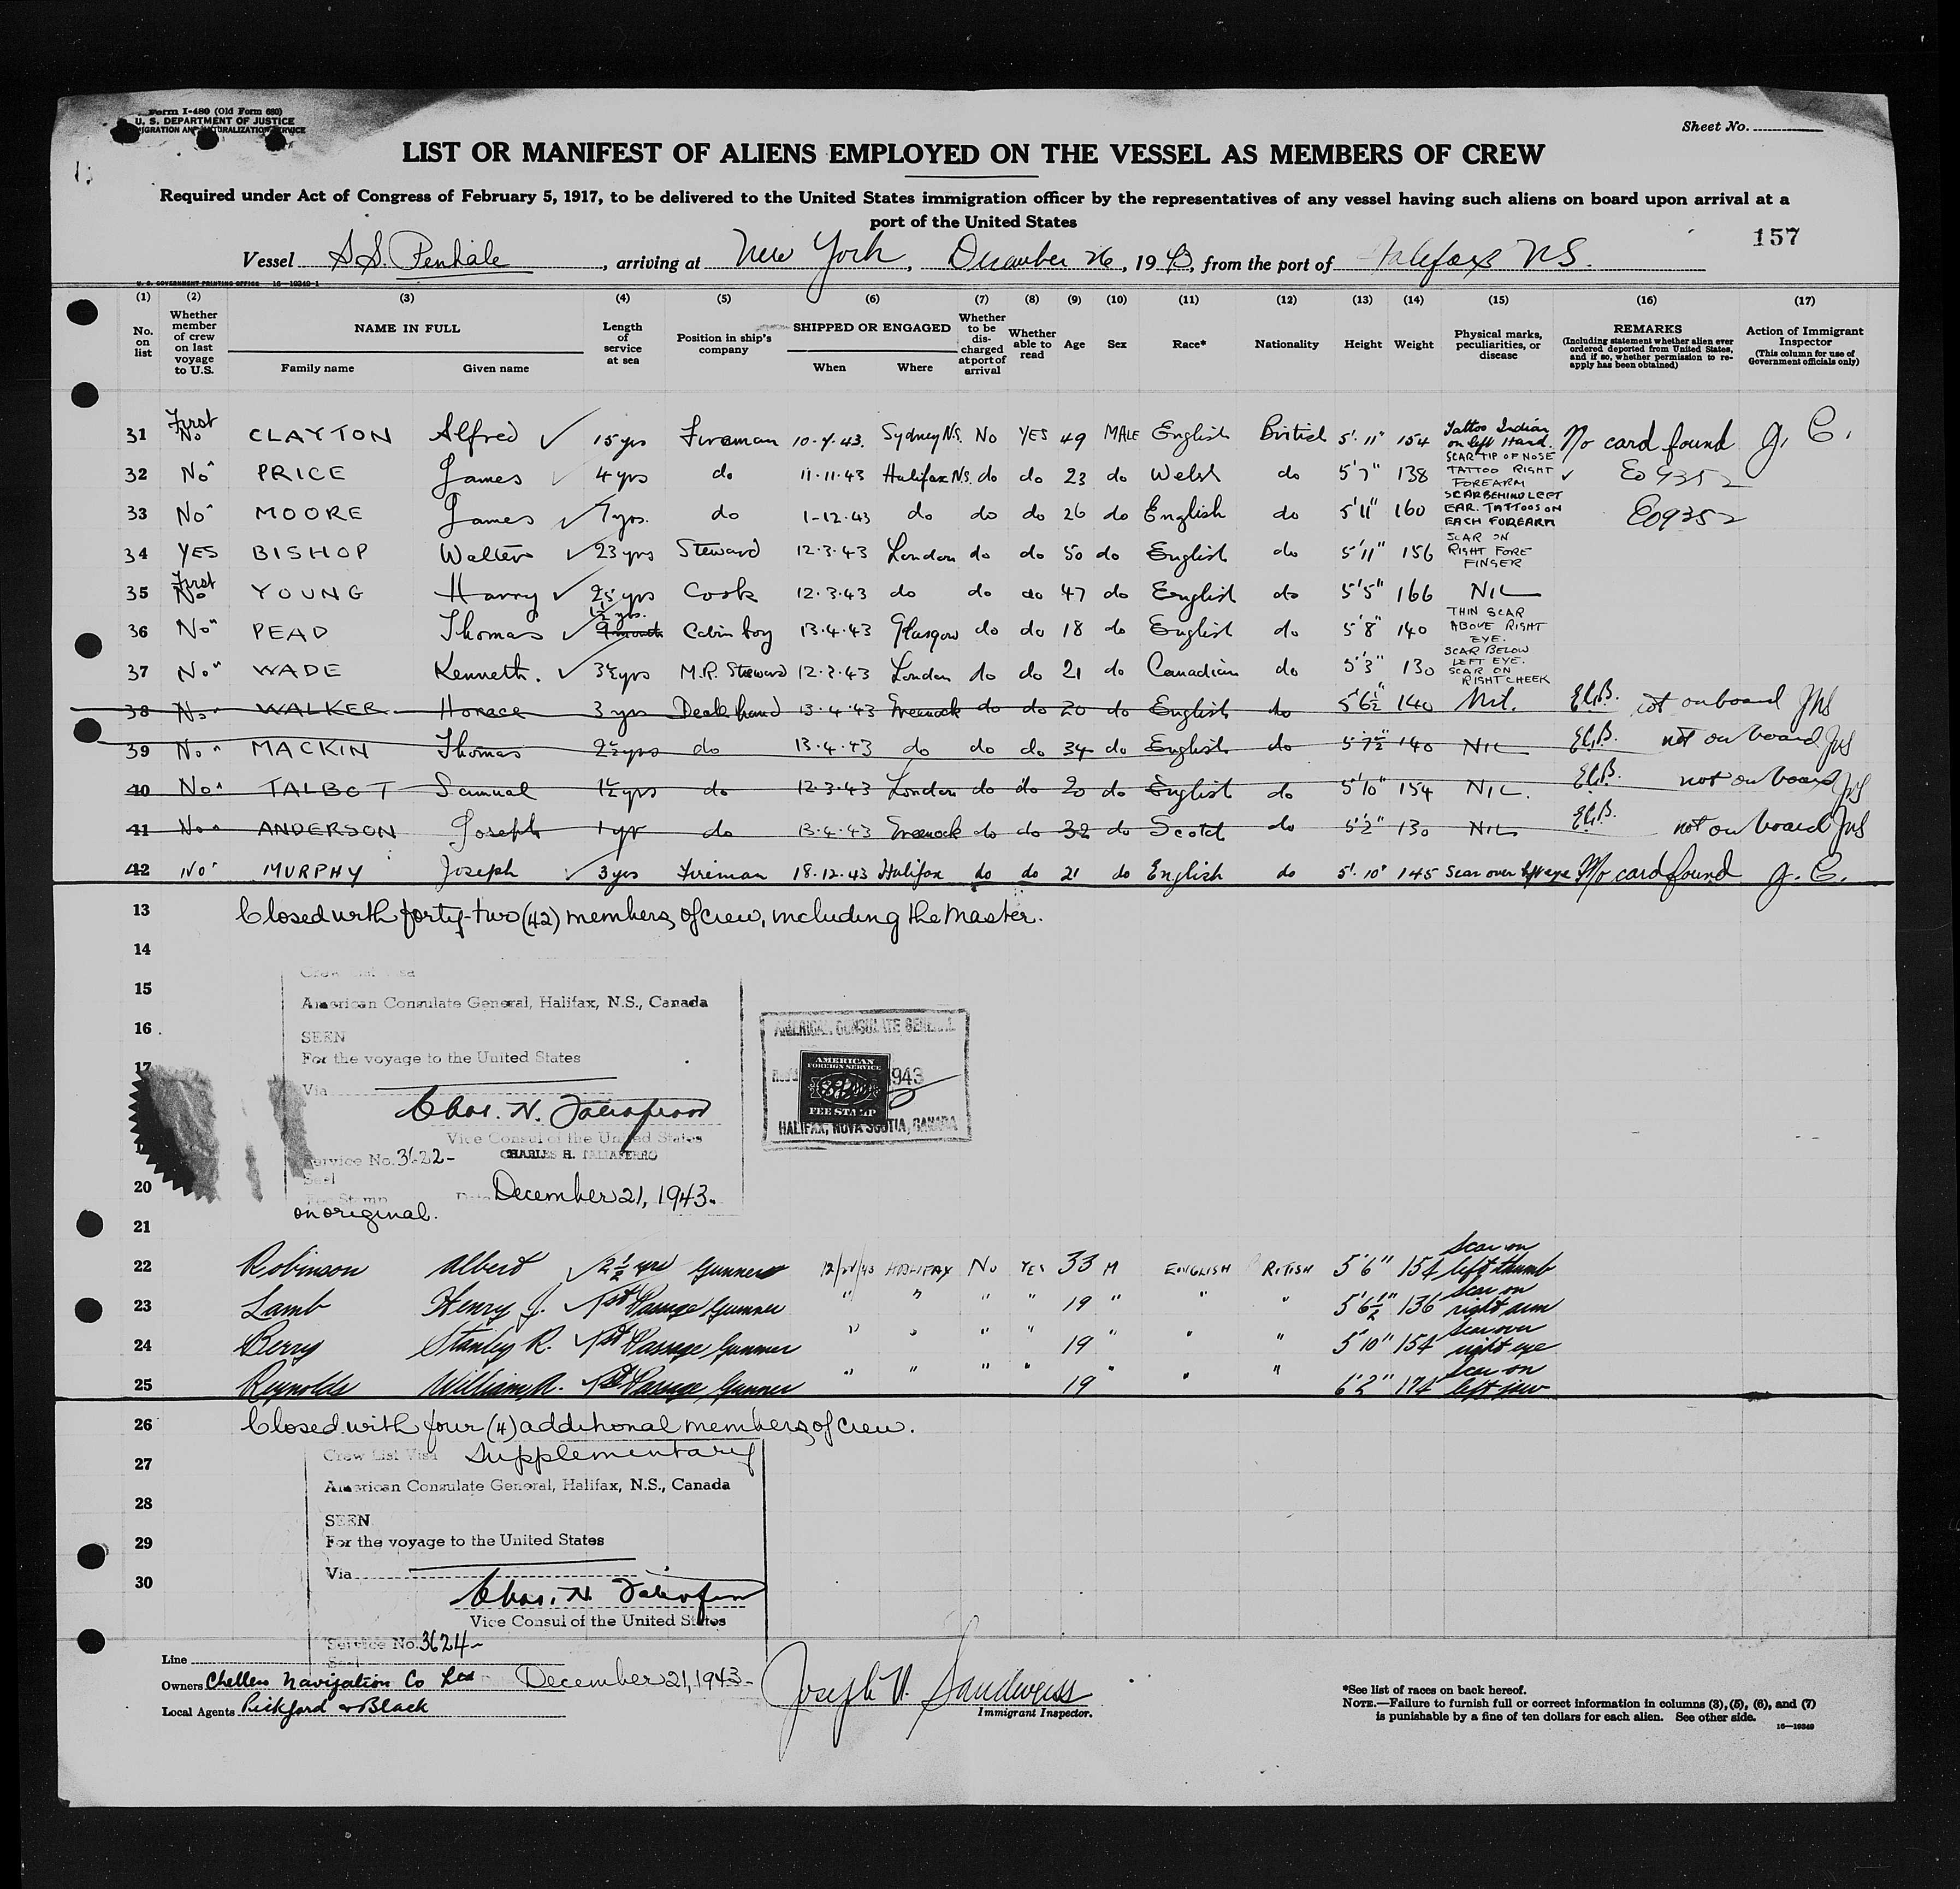 Form I-480 (Old Form 680)
U. S. DEPARTMENT OF JUSTICE
IMMIGRATION AND NATURALIZATION SERVICE
Sheet No.
LIST OR MANIFEST OF ALIENS EMPLOYED ON THE VESSEL AS MEMBERS OF CREW
Required under Act of Congress of February 5, 1917, to be delivered to the United States immigration officer by the representatives of any vessel having such aliens on board upon arrival at a
port of the United States
157
Vessel S.S. Penhale, arriving at New York, December 26, 1943, from the port of Halifax NS.
U. S. GOVERNMENT PRINTING OFFICE 16-19349-1
(1) (2) (3) (4) (5) (6) (7) (8) (9) (10) (11) (12) (13) (14) (15) (16) (17)
No. on list
Whether member of crew on last voyage to U.S.
NAME IN FULL
Family name Given name
Length of service at sea
Position in ship's company
SHIPPED OR ENGAGED
When Where
Whether to be discharged at port of arrival
Whether able to read
Age
Sex
Race*
Nationality
Height
Weight
Physical marks, peculiarities, or disease
REMARKS
(Including statement whether alien ever ordered deported from United States, and if so, whether permission to reapply has been obtained)
Action of Immigrant Inspector
(This column for use of Government officials only)
31 First No CLAYTON Alfred ✓ 15 yrs Fireman 10-7-43. Sydney N.S. No YES 49 MALE English British 5'.11" 154 Tattoo Indian on left Hand. No card found J. C.
32 No " PRICE James ✓ 4 yrs do 11-11-43 Halifax N.S. do do 23 do Welsh do 5'7" 138 SCAR TIP OF NOSE TATTOO RIGHT FOREARM ✓ E09352
33 No " MOORE James ✓ 7 yrs. do 1-12-43 do do do 26 do English do 5'11" 160 SCAR BEHIND LEFT EAR. TATTOOS ON EACH FOREARM E09352
34 YES BISHOP Walter ✓ 23 yrs Steward 12.3.43 London do do 50 do English do 5'11" 156 SCAR ON RIGHT FORE FINGER
35 First No YOUNG Harry ✓ 25 yrs Cook 12.3.43 do do do 47 do English do 5'5" 166 NIL
36 No " PEAD Thomas ✓ 1½ yrs. 9 month Cabin boy 13.4.43 Glasgow do do 18 do English do 5'8" 140 THIN SCAR ABOVE RIGHT EYE.
37 No " WADE Kenneth. ✓ 3½ yrs M.R. Steward 12.3.43 London do do 21 do Canadian do 5'3" 130 SCAR BELOW LEFT EYE. SCAR ON RIGHT CHEEK
38 No " WALKER Horace 3 yrs Deck hand 13.4.43 Greenock do do 20 do English do 5'6½" 140 Nil. not on board
39 No " MACKIN Thomas 2½ yrs do 13.4.43 do do do 34 do English do 5'7½" 140 NIL not on board
40 No " TALBOT Samuel 1½ yrs do 12.3.43 London do do 20 do English do 5'10" 154 NIL. not on board
41 No " ANDERSON Joseph 1 yr do 13.4.43 Greenock do do 32 do Scotch do 5'2" 130 NIL not on board
42 No " MURPHY Joseph ✓ 3 yrs Fireman 18.12.43 Halifax do do 21 do English do 5'.10" 145 Scar over left eye No card found J. C.
13 Closed with forty-two (42) members of crew, including the Master.
14
Crew List Visa
15
American Consulate General, Halifax, N.S., Canada
16
SEEN
For the voyage to the United States
17
Via
Chas. H. Taliaferro
Vice Consul of the United States
CHARLES H. TALIAFERRO
Service No. 3622-
Seal
Fee Stamp Date December 21, 1943.
on original.
AMERICAN CONSULATE GENERAL
AMERICAN FOREIGN SERVICE
1943
FEE STAMP
HALIFAX, NOVA SCOTIA, CANADA
20
21
22 Robinson Albert ✓ 2½ yrs Gunner 12/21/43 HALIFAX No YES 33 M ENGLISH BRITISH 5'6" 154 Scar on left thumb
23 Lamb Henry J. ✓ 1st Passage Gunner " " " " 19 " " " 5'6½" 136 Scar on right arm
24 Berry Stanley R. ✓ 1st Passage Gunner " " " " 19 " " " 5'10" 154 Scar over right eye
25 Reynolds William A. ✓ 1st Passage Gunner " " " " 19 " " " 6'2" 174 Scar on left jaw
26 Closed with four (4) additional members of crew.
Crew List Visa Supplementary
27
American Consulate General, Halifax, N.S., Canada
28
SEEN
29
For the voyage to the United States
Via
30
Chas. H. Taliaferro
Vice Consul of the United States
Service No. 3624-
Seal
Line
Owners Chellew Navigation Co Ltd December 21, 1943-
Local Agents Pickford & Black
Joseph V. Sandweiss
Immigrant Inspector.
*See list of races on back hereof.
NOTE.—Failure to furnish full or correct information in columns (3), (5), (6), and (7)
is punishable by a fine of ten dollars for each alien. See other side.
16—19349